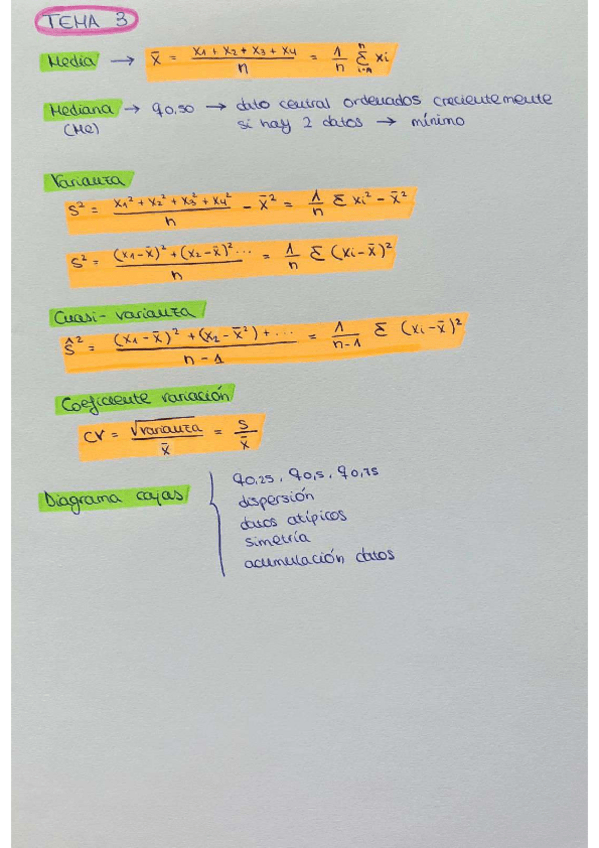 TEMA 3
Media → x̄ = (x1 + x2 + x3 + x4) / n = 1/n Σ(i=1, n) xi
Mediana → q0,50 → dato central ordenados crecientemente
(Me) si hay 2 datos → mínimo
Varianza
S² = (x1² + x2² + x3² + x4²) / n - x̄² = 1/n Σ xi² - x̄²
S² = ((x1-x̄)² + (x2-x̄)² ...) / n = 1/n Σ (xi-x̄)²
Cuasi-varianza
Ŝ² = ((x1-x̄)² + (x2-x̄²) + ...) / (n-1) = 1/(n-1) Σ (xi-x̄)²
Coeficiente variación
CV = √varianza / x̄ = S / x̄
Diagrama cajas { q0,25, q0,5, q0,75
dispersión
datos atípicos
simetría
acumulación datos